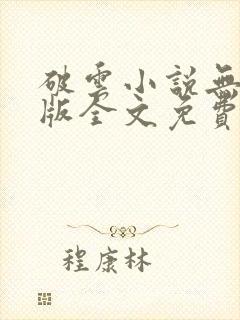 破雲小說無
版全文免費
程康林